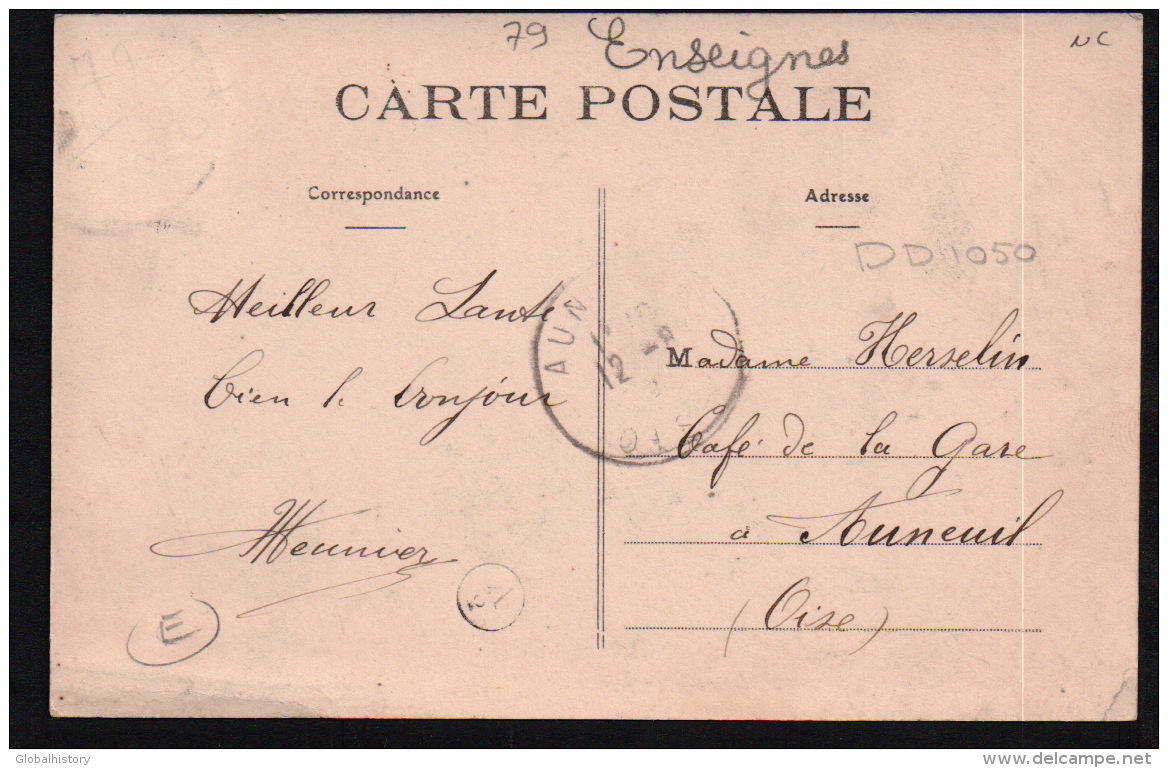 79 Enseignes
NC
79
CARTE POSTALE
Correspondance
Adresse
DD1050
Meilleur Santé
bien le bonjour
Meunier
E
AUN
12
OISE
Madame Herselin
Café de la Gare
à Auneuil
(Oise)
Globalhistory
delcampe.net